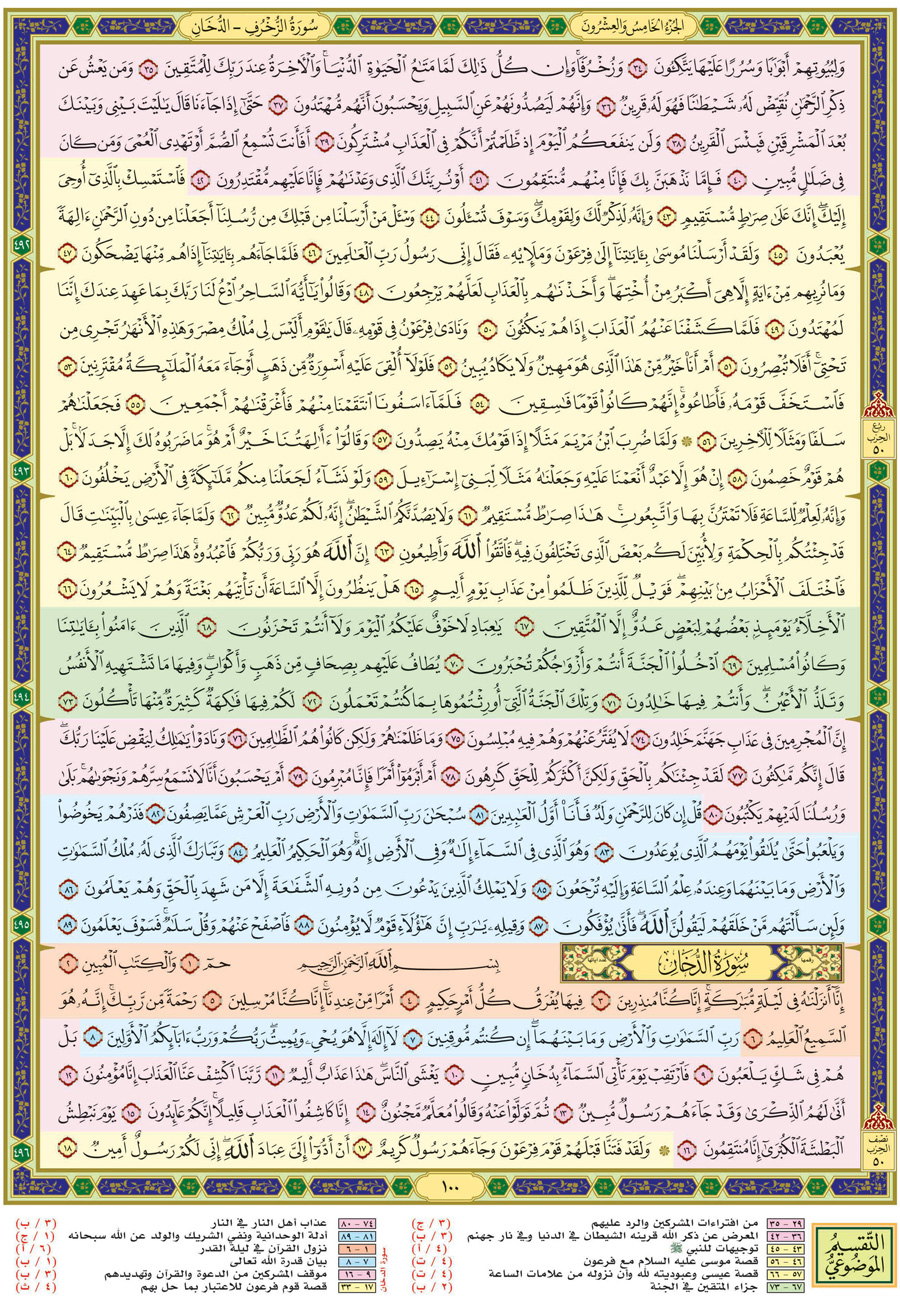 الجزء الخامس والعشرون
سورة الزخرف - الدخان
وَلِبُيُوتِهِمْ أَبْوَٰبًا وَسُرُرًا عَلَيْهَا يَتَّكِـُٔونَ ٣٤ وَزُخْرُفًا وَإِن كُلُّ ذَٰلِكَ لَمَّا مَتَٰعُ الْحَيَوٰةِ الدُّنْيَا وَالْءَاخِرَةُ عِندَ رَبِّكَ لِلْمُتَّقِينَ ٣٥ وَمَن يَعْشُ عَن
ذِكْرِ الرَّحْمَٰنِ نُقَيِّضْ لَهُۥ شَيْطَٰنًا فَهُوَ لَهُۥ قَرِينٌ ٣٦ وَإِنَّهُمْ لَيَصُدُّونَهُمْ عَنِ السَّبِيلِ وَيَحْسَبُونَ أَنَّهُم مُّهْتَدُونَ ٣٧ حَتَّىٰ إِذَا جَاءَنَا قَالَ يَٰلَيْتَ بَيْنِي وَبَيْنَكَ
بُعْدَ الْمَشْرِقَيْنِ فَبِئْسَ الْقَرِينُ ٣٨ وَلَن يَنفَعَكُمُ الْيَوْمَ إِذ ظَّلَمْتُمْ أَنَّكُمْ فِي الْعَذَابِ مُشْتَرِكُونَ ٣٩ أَفَأَنتَ تُسْمِعُ الصُّمَّ أَوْ تَهْدِي الْعُمْيَ وَمَن كَانَ
فِي ضَلَٰلٍ مُّبِينٍ ٤٠ فَإِمَّا نَذْهَبَنَّ بِكَ فَإِنَّا مِنْهُم مُّنتَقِمُونَ ٤١ أَوْ نُرِيَنَّكَ الَّذِي وَعَدْنَٰهُمْ فَإِنَّا عَلَيْهِم مُّقْتَدِرُونَ ٤٢ فَاسْتَمْسِكْ بِالَّذِي أُوحِيَ
إِلَيْكَ إِنَّكَ عَلَىٰ صِرَٰطٍ مُّسْتَقِيمٍ ٤٣ وَإِنَّهُۥ لَذِكْرٌ لَّكَ وَلِقَوْمِكَ وَسَوْفَ تُسْـَٔلُونَ ٤٤ وَسْـَٔلْ مَنْ أَرْسَلْنَا مِن قَبْلِكَ مِن رُّسُلِنَا أَجَعَلْنَا مِن دُونِ الرَّحْمَٰنِ ءَالِهَةً
يُعْبَدُونَ ٤٥ وَلَقَدْ أَرْسَلْنَا مُوسَىٰ بِـَٔايَٰتِنَا إِلَىٰ فِرْعَوْنَ وَمَلَإِيْهِۦ فَقَالَ إِنِّي رَسُولُ رَبِّ الْعَٰلَمِينَ ٤٦ فَلَمَّا جَاءَهُم بِـَٔايَٰتِنَا إِذَا هُم مِّنْهَا يَضْحَكُونَ ٤٧
وَمَا نُرِيهِم مِّنْ ءَايَةٍ إِلَّا هِيَ أَكْبَرُ مِنْ أُخْتِهَا وَأَخَذْنَٰهُم بِالْعَذَابِ لَعَلَّهُمْ يَرْجِعُونَ ٤٨ وَقَالُوا يَٰأَيُّهَ السَّاحِرُ ادْعُ لَنَا رَبَّكَ بِمَا عَهِدَ عِندَكَ إِنَّنَا
لَمُهْتَدُونَ ٤٩ فَلَمَّا كَشَفْنَا عَنْهُمُ الْعَذَابَ إِذَا هُمْ يَنكُثُونَ ٥٠ وَنَادَىٰ فِرْعَوْنُ فِي قَوْمِهِۦ قَالَ يَٰقَوْمِ أَلَيْسَ لِي مُلْكُ مِصْرَ وَهَٰذِهِ الْأَنْهَٰرُ تَجْرِي مِن
تَحْتِي أَفَلَا تُبْصِرُونَ ٥١ أَمْ أَنَا خَيْرٌ مِّنْ هَٰذَا الَّذِي هُوَ مَهِينٌ وَلَا يَكَادُ يُبِينُ ٥٢ فَلَوْلَا أُلْقِيَ عَلَيْهِ أَسْوِرَةٌ مِّن ذَهَبٍ أَوْ جَاءَ مَعَهُ الْمَلَٰئِكَةُ مُقْتَرِنِينَ ٥٣
فَاسْتَخَفَّ قَوْمَهُۥ فَأَطَاعُوهُ إِنَّهُمْ كَانُوا قَوْمًا فَٰسِقِينَ ٥٤ فَلَمَّا ءَاسَفُونَا انتَقَمْنَا مِنْهُمْ فَأَغْرَقْنَٰهُمْ أَجْمَعِينَ ٥٥ فَجَعَلْنَٰهُمْ
سَلَفًا وَمَثَلًا لِّلْءَاخِرِينَ ٥٦ ۞ وَلَمَّا ضُرِبَ ابْنُ مَرْيَمَ مَثَلًا إِذَا قَوْمُكَ مِنْهُ يَصِدُّونَ ٥٧ وَقَالُوا ءَأَٰلِهَتُنَا خَيْرٌ أَمْ هُوَ مَا ضَرَبُوهُ لَكَ إِلَّا جَدَلًا بَلْ
هُمْ قَوْمٌ خَصِمُونَ ٥٨ إِنْ هُوَ إِلَّا عَبْدٌ أَنْعَمْنَا عَلَيْهِ وَجَعَلْنَٰهُ مَثَلًا لِّبَنِي إِسْرَٰءِيلَ ٥٩ وَلَوْ نَشَاءُ لَجَعَلْنَا مِنكُم مَّلَٰئِكَةً فِي الْأَرْضِ يَخْلُفُونَ ٦٠
وَإِنَّهُۥ لَعِلْمٌ لِّلسَّاعَةِ فَلَا تَمْتَرُنَّ بِهَا وَاتَّبِعُونِ هَٰذَا صِرَٰطٌ مُّسْتَقِيمٌ ٦١ وَلَا يَصُدَّنَّكُمُ الشَّيْطَٰنُ إِنَّهُۥ لَكُمْ عَدُوٌّ مُّبِينٌ ٦٢ وَلَمَّا جَاءَ عِيسَىٰ بِالْبَيِّنَٰتِ قَالَ
قَدْ جِئْتُكُم بِالْحِكْمَةِ وَلِأُبَيِّنَ لَكُم بَعْضَ الَّذِي تَخْتَلِفُونَ فِيهِ فَاتَّقُوا اللَّهَ وَأَطِيعُونِ ٦٣ إِنَّ اللَّهَ هُوَ رَبِّي وَرَبُّكُمْ فَاعْبُدُوهُ هَٰذَا صِرَٰطٌ مُّسْتَقِيمٌ ٦٤
فَاخْتَلَفَ الْأَحْزَابُ مِن بَيْنِهِمْ فَوَيْلٌ لِّلَّذِينَ ظَلَمُوا مِنْ عَذَابِ يَوْمٍ أَلِيمٍ ٦٥ هَلْ يَنظُرُونَ إِلَّا السَّاعَةَ أَن تَأْتِيَهُم بَغْتَةً وَهُمْ لَا يَشْعُرُونَ ٦٦
الْأَخِلَّاءُ يَوْمَئِذٍ بَعْضُهُمْ لِبَعْضٍ عَدُوٌّ إِلَّا الْمُتَّقِينَ ٦٧ يَٰعِبَادِ لَا خَوْفٌ عَلَيْكُمُ الْيَوْمَ وَلَا أَنتُمْ تَحْزَنُونَ ٦٨ الَّذِينَ ءَامَنُوا بِـَٔايَٰتِنَا
وَكَانُوا مُسْلِمِينَ ٦٩ ادْخُلُوا الْجَنَّةَ أَنتُمْ وَأَزْوَٰجُكُمْ تُحْبَرُونَ ٧٠ يُطَافُ عَلَيْهِم بِصِحَافٍ مِّن ذَهَبٍ وَأَكْوَابٍ وَفِيهَا مَا تَشْتَهِيهِ الْأَنفُسُ
وَتَلَذُّ الْأَعْيُنُ وَأَنتُمْ فِيهَا خَٰلِدُونَ ٧١ وَتِلْكَ الْجَنَّةُ الَّتِي أُورِثْتُمُوهَا بِمَا كُنتُمْ تَعْمَلُونَ ٧٢ لَكُمْ فِيهَا فَٰكِهَةٌ كَثِيرَةٌ مِّنْهَا تَأْكُلُونَ ٧٣
إِنَّ الْمُجْرِمِينَ فِي عَذَابِ جَهَنَّمَ خَٰلِدُونَ ٧٤ لَا يُفَتَّرُ عَنْهُمْ وَهُمْ فِيهِ مُبْلِسُونَ ٧٥ وَمَا ظَلَمْنَٰهُمْ وَلَٰكِن كَانُوا هُمُ الظَّٰلِمِينَ ٧٦ وَنَادَوْا يَٰمَٰلِكُ لِيَقْضِ عَلَيْنَا رَبُّكَ
قَالَ إِنَّكُم مَّٰكِثُونَ ٧٧ لَقَدْ جِئْنَٰكُم بِالْحَقِّ وَلَٰكِنَّ أَكْثَرَكُمْ لِلْحَقِّ كَٰرِهُونَ ٧٨ أَمْ أَبْرَمُوا أَمْرًا فَإِنَّا مُبْرِمُونَ ٧٩ أَمْ يَحْسَبُونَ أَنَّا لَا نَسْمَعُ سِرَّهُمْ وَنَجْوَىٰهُم بَلَىٰ
وَرُسُلُنَا لَدَيْهِمْ يَكْتُبُونَ ٨٠ قُلْ إِن كَانَ لِلرَّحْمَٰنِ وَلَدٌ فَأَنَا أَوَّلُ الْعَٰبِدِينَ ٨١ سُبْحَٰنَ رَبِّ السَّمَٰوَٰتِ وَالْأَرْضِ رَبِّ الْعَرْشِ عَمَّا يَصِفُونَ ٨٢ فَذَرْهُمْ يَخُوضُوا
وَيَلْعَبُوا حَتَّىٰ يُلَٰقُوا يَوْمَهُمُ الَّذِي يُوعَدُونَ ٨٣ وَهُوَ الَّذِي فِي السَّمَاءِ إِلَٰهٌ وَفِي الْأَرْضِ إِلَٰهٌ وَهُوَ الْحَكِيمُ الْعَلِيمُ ٨٤ وَتَبَارَكَ الَّذِي لَهُۥ مُلْكُ السَّمَٰوَٰتِ
وَالْأَرْضِ وَمَا بَيْنَهُمَا وَعِندَهُۥ عِلْمُ السَّاعَةِ وَإِلَيْهِ تُرْجَعُونَ ٨٥ وَلَا يَمْلِكُ الَّذِينَ يَدْعُونَ مِن دُونِهِ الشَّفَٰعَةَ إِلَّا مَن شَهِدَ بِالْحَقِّ وَهُمْ يَعْلَمُونَ ٨٦
وَلَئِن سَأَلْتَهُم مَّنْ خَلَقَهُمْ لَيَقُولُنَّ اللَّهُ فَأَنَّىٰ يُؤْفَكُونَ ٨٧ وَقِيلِهِۦ يَٰرَبِّ إِنَّ هَٰؤُلَاءِ قَوْمٌ لَّا يُؤْمِنُونَ ٨٨ فَاصْفَحْ عَنْهُمْ وَقُلْ سَلَٰمٌ فَسَوْفَ يَعْلَمُونَ ٨٩
سُورَةُ الدُّخَانِ
بِسْمِ اللَّهِ الرَّحْمَٰنِ الرَّحِيمِ حمٓ ١ وَالْكِتَٰبِ الْمُبِينِ ٢
إِنَّا أَنزَلْنَٰهُ فِي لَيْلَةٍ مُّبَٰرَكَةٍ إِنَّا كُنَّا مُنذِرِينَ ٣ فِيهَا يُفْرَقُ كُلُّ أَمْرٍ حَكِيمٍ ٤ أَمْرًا مِّنْ عِندِنَا إِنَّا كُنَّا مُرْسِلِينَ ٥ رَحْمَةً مِّن رَّبِّكَ إِنَّهُۥ هُوَ
السَّمِيعُ الْعَلِيمُ ٦ رَبِّ السَّمَٰوَٰتِ وَالْأَرْضِ وَمَا بَيْنَهُمَا إِن كُنتُم مُّوقِنِينَ ٧ لَا إِلَٰهَ إِلَّا هُوَ يُحْيِۦ وَيُمِيتُ رَبُّكُمْ وَرَبُّ ءَابَائِكُمُ الْأَوَّلِينَ ٨ بَلْ
هُمْ فِي شَكٍّ يَلْعَبُونَ ٩ فَارْتَقِبْ يَوْمَ تَأْتِي السَّمَاءُ بِدُخَانٍ مُّبِينٍ ١٠ يَغْشَى النَّاسَ هَٰذَا عَذَابٌ أَلِيمٌ ١١ رَّبَّنَا اكْشِفْ عَنَّا الْعَذَابَ إِنَّا مُؤْمِنُونَ ١٢
أَنَّىٰ لَهُمُ الذِّكْرَىٰ وَقَدْ جَاءَهُمْ رَسُولٌ مُّبِينٌ ١٣ ثُمَّ تَوَلَّوْا عَنْهُ وَقَالُوا مُعَلَّمٌ مَّجْنُونٌ ١٤ إِنَّا كَاشِفُوا الْعَذَابِ قَلِيلًا إِنَّكُمْ عَائِدُونَ ١٥ يَوْمَ نَبْطِشُ
الْبَطْشَةَ الْكُبْرَىٰ إِنَّا مُنتَقِمُونَ ١٦ ۞ وَلَقَدْ فَتَنَّا قَبْلَهُمْ قَوْمَ فِرْعَوْنَ وَجَاءَهُمْ رَسُولٌ كَرِيمٌ ١٧ أَنْ أَدُّوا إِلَيَّ عِبَادَ اللَّهِ إِنِّي لَكُمْ رَسُولٌ أَمِينٌ ١٨
ربع الحزب ٥٠
نصف الحزب ٥٠
٤٩٢
٤٩٣
٤٩٤
٤٩٥
٤٩٦
١٠٠
التقسيم الموضوعي
٢٩ - ٣٥ من افتراءات المشركين والرد عليهم (٣ / ج)
٣٦ - ٤٢ المعرض عن ذكر الله قرينه الشيطان في الدنيا وفي نار جهنم (٣ / ب)
٤٣ - ٤٥ توجيهات للنبي ﷺ (٤ / أ)
٤٦ - ٥٦ قصة موسى عليه السلام مع فرعون (٤ / ت)
٥٧ - ٦٦ قصة عيسى وعبوديته لله وأن نزوله من علامات الساعة (٤ / ت)
٦٧ - ٧٣ جزاء المتقين في الجنة (٢ / ب)
٧٤ - ٨٠ عذاب أهل النار في النار (٣ / ب)
٨١ - ٨٩ أدلة الوحدانية ونفي الشريك والولد عن الله سبحانه (١ / ج)
سورة الدخان
١ - ٦ نزول القرآن في ليلة القدر (٦ / أ)
٧ - ٨ بيان قدرة الله تعالى (١ / ب)
٩ - ١٦ موقف المشركين من الدعوة والقرآن وتهديدهم (٣ / ب)
١٧ - ٣٣ قصة قوم فرعون للاعتبار بما حل بهم (٤ / ث)